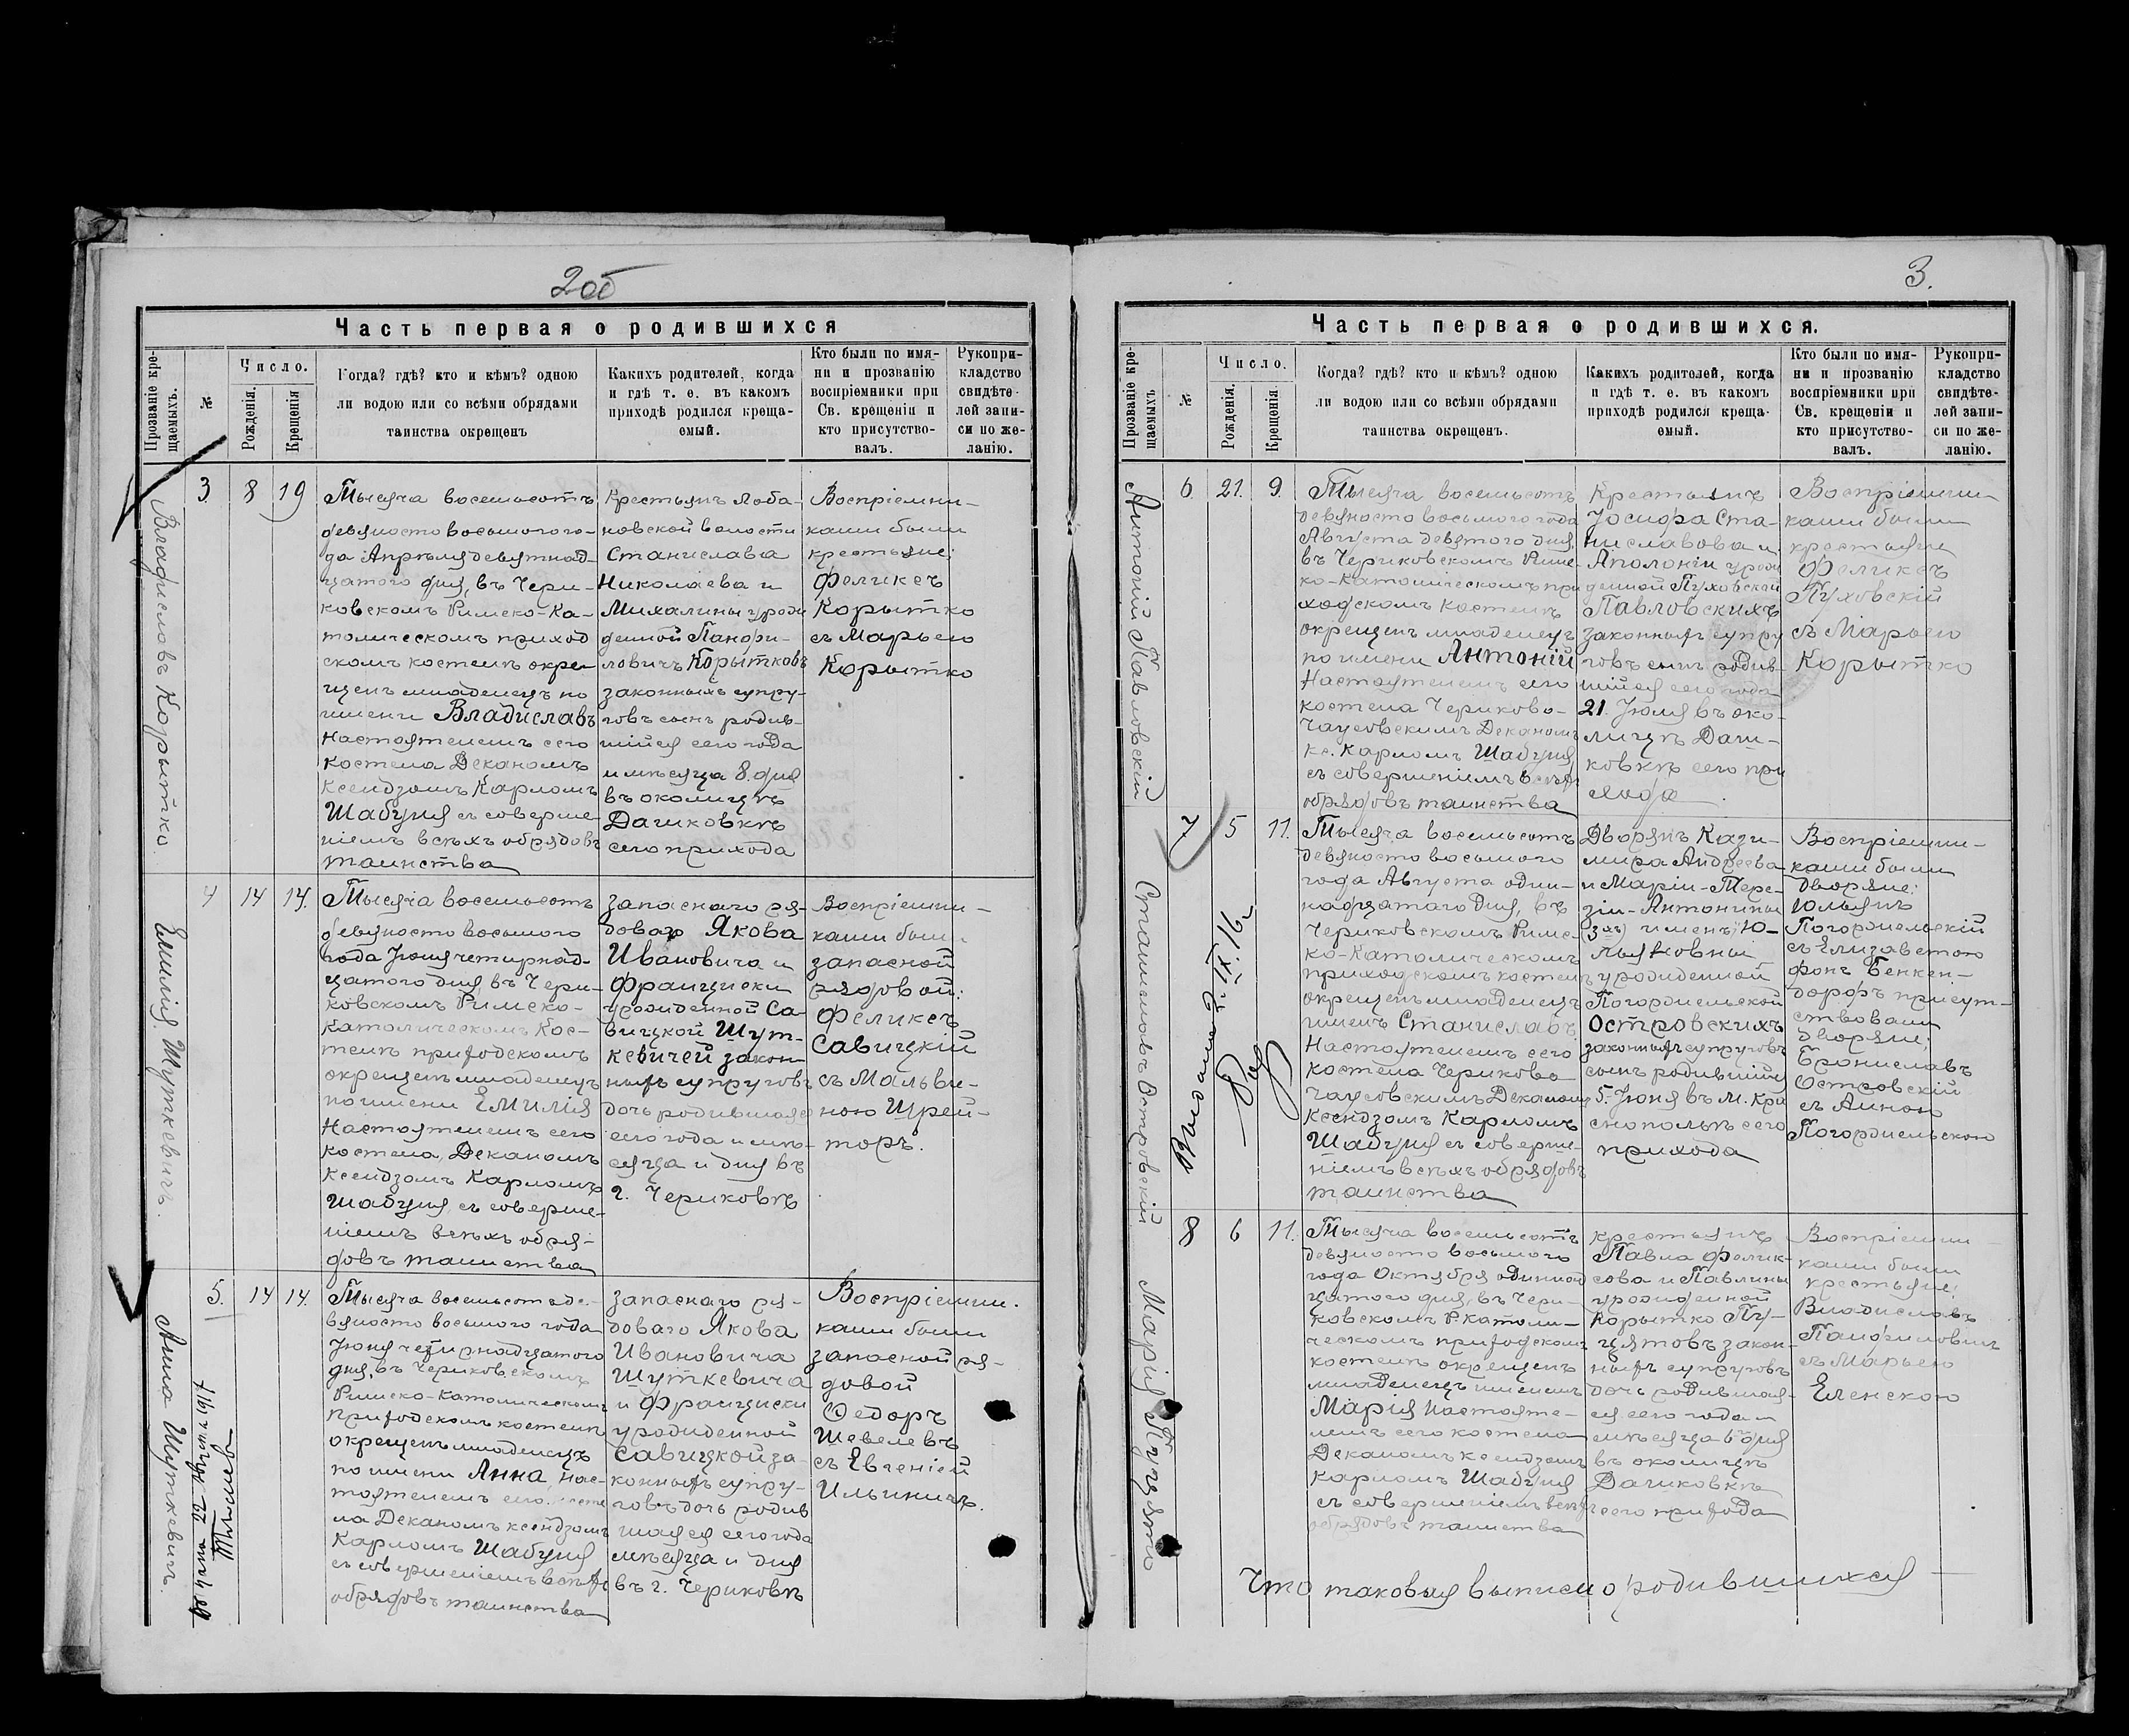 2об
Часть первая о родившихся
Прозваніе кре-
щаемыхъ.
№
Число.
Рожденія.
Крещенія
Когда? гдѣ? кто и кѣмъ? одною
ли водою или со всѣми обрядами
таинства окрещенъ
Какихъ родителей, когда
и гдѣ т. е. въ какомъ
приходѣ родился креща-
емый.
Кто были по имя-
ни и прозванію
воспріемники при
Св. крещеніи и
кто присутство-
валъ.
Рукопри-
кладство
свидѣте-
лей запи-
си по же-
ланію.
Владиславъ Корытко
3.
8
19
Тысяча восемьсотъ
девяносто восьмого го-
да Апрѣля девятнад-
цатого дня, въ Чери-
ковскомъ Римско-Ка-
толическомъ приход
скомъ костелѣ окре-
щенъ младенецъ по
имени Владиславъ
Настоятелемъ сего
костела Деканомъ
Ксендзомъ Карломъ
Шабуня съ соверше-
ніемъ всѣхъ обрядовъ
таинства
Крестьянъ Лоба-
новской волости
Станислава
Николаева и
Михалины урож
денной Панфи-
ловичъ Корытковъ
законныхъ супру-
говъ сынъ родив-
шійся сего года
и мѣсяца 8. дня
въ околицѣ
Дачиковкѣ
сего прихода
Воспріемни-
ками были
крестьяне:
Феликсъ
Корытко
съ Марьею
Корытко
Емилія Шуткевичъ.
4
14
14.
Тысяча восемьсотъ
девяносто восьмого
года Іюня четырнад-
цатого дня въ Чери-
ковскомъ Римско-
Католическомъ Кос-
телѣ приходскомъ
окрещенъ младенецъ
по имени Емилія
Настоятелемъ сего
костела, Деканомъ
Ксендзомъ Карломъ
Шабуня, съ соверше-
ніемъ всѣхъ обря-
довъ таинства
запаснаго ря-
довар Якова
Ивановича и
Франциски
урожденной Са-
вицкой Шут-
кевичей закон
ныхъ супруговъ
дочь родившаяся
сего года и мѣ-
сяца и дня въ
г. Чериковѣ
Воспріемни-
ками были
запасной
рядовой:
Феликсъ
Савицкій
съ Мальви-
ною Шрей-
торъ.
Анна Шуткевичъ.
22 Августа 1917
5.
14
14.
Тысяча восемьсотъ де-
вяносто восьмого года
Іюня четырнадцатого
дня, въ Чериковскомъ
Римско-Католическомъ
Приходскомъ костелѣ
окрещенъ младенецъ
по имени Анна, нас-
тоятелемъ сего косте
ла Деканомъ ксендзомъ
Карломъ Шабуня
съ совершеніемъ всѣхъ
обрядовъ таинства
запаснаго ря-
доваго Якова
Ивановича
Шуткевича
и Франциски
урожденной
Савицкой за-
конныхъ супру-
говъ дочь родив
шаяся сего года
мѣсяца и дня
въ г. Чериковѣ
Воспріемни-
ками были
запасной ря-
довой
Ѳедоръ
Шевелевъ
съ Евгеніей
Ильиничъ.
3.
Часть первая о родившихся.
Прозваніе кре-
щаемыхъ
№
Число.
Рожденія.
Крещенія
Когда? гдѣ? кто и кѣмъ? одною
ли водою или со всѣми обрядами
таинства окрещенъ.
Какихъ родителей, когда
и гдѣ т. е. въ какомъ
приходѣ родился креща-
емый.
Кто были по имя-
ни и прозванію
воспріемники при
Св. крещеніи и
кто присутство-
валъ.
Рукопри-
кладство
свидѣте-
лей запи-
си по же-
ланію.
Антоній Павловскій
6.
21.
9.
Тысяча восемьсотъ
девяносто восьмого года
Августа девятого дня,
въ Чериковскомъ Римс-
ко-Католическомъ при
ходскомъ костелѣ
окрещенъ младенецъ
по имени Антоній
Настоятелемъ сего
костела Чериково-
Чаусовскимъ Деканомъ
кс. Карломъ Шабуня,
съ совершеніемъ всѣхъ
обрядовъ таинства
Крестьянъ
Іосифа Ста-
ниславова и
Аполоніи урож
денной Пуховской
Павловскихъ
законныхъ супру
говъ сынъ родив-
шійся сего года
21. Іюля въ око-
лицѣ Дачи-
ковкѣ сего при
хода.
Воспріемни-
ками были
крестьяне
Феликсъ
Пуховскій
съ Марьею
Корытко
Станиславъ Островскій
7
5
11.
Тысяча восемьсотъ
девяносто восьмого
года Августа один-
надцатаго дня, въ
Чериковскомъ Римс-
ко-Католическомъ
приходскомъ костелѣ
окрещенъ младенецъ
именемъ Станиславъ
Настоятелемъ сего
костела Чериково
Чаусовскимъ Деканомъ
Ксендзомъ Карломъ
Шабуня съ соверше-
ніемъ всѣхъ обрядовъ
таинства
Дворянъ Кази-
мира Андреева
и Маріи-Тере-
зіи-Антонины
(3хъ именъ) Ю-
льяновны
урожденной
Погоржельской
Островскихъ
законныхъ супруговъ
сынъ родившійся
5. Іюня въ м. Кра
снопольѣ сего
прихода
Воспріемни-
ками были
дворяне:
Юльянъ
Погоржельскій
съ Елизаветою
фонъ Бенкен-
дорфъ присут-
ствовали
дворяне:
Брониславъ
Островскій
съ Анною
Погоржельскою
Марія Пучято
8
6
11.
Тысяча восемьсотъ
девяносто восьмого
года Октября одинад
цатого дня, въ Чери-
ковскомъ Р Католи-
ческомъ приходскомъ
костелѣ окрещенъ
младенецъ именемъ
Марія Настояте-
лемъ сего костела
Деканомъ ксендзомъ
Карломъ Шабуня
съ совершеніемъ всѣхъ
обрядовъ таинства
крестьянъ
Павла Фелик-
сова и Павлины
урожденной
Корытко Пу-
чятовъ закон-
ныхъ супруговъ
дочь родившая-
ся сего года и
мѣсяца 6 дня
въ околицѣ
Дачиковкѣ
сего прихода
Воспріемни-
ками были
крестьяне:
Владиславъ
Панфиловичъ
съ Марьею
Еленскою
Что таковыя выписи о родившихся